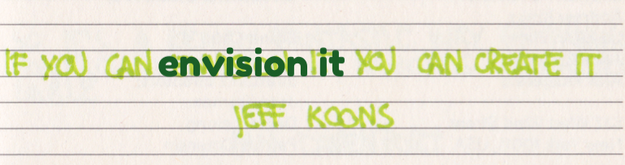 IF YOU CAN envision it YOU CAN CREATE IT
JEFF KOONS